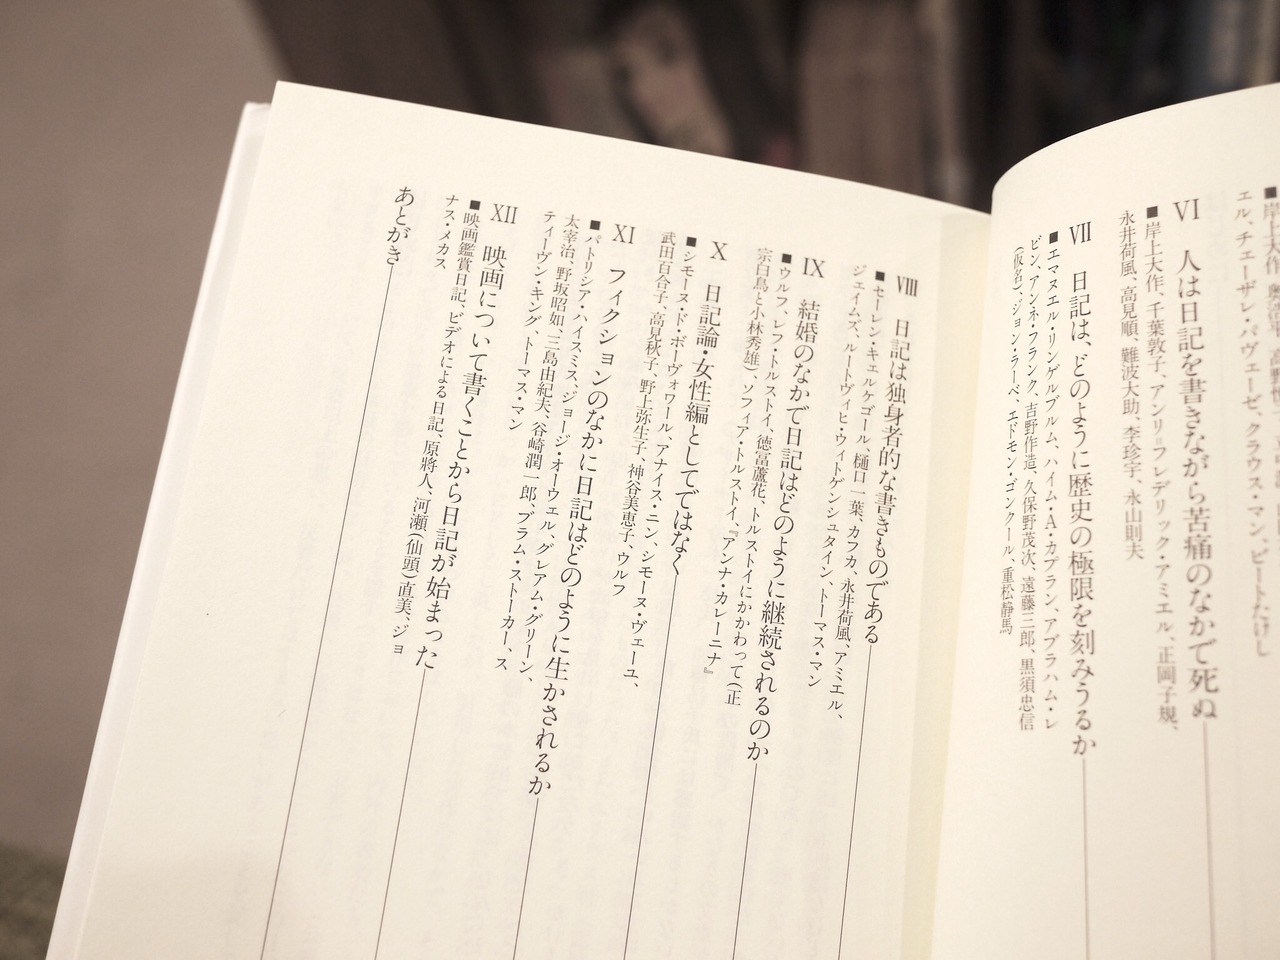 エル、チェーザレ・パヴェーゼ、クラウス・マン、ビートたけし
VI　人は日記を書きながら苦痛のなかで死ぬ
■岸上大作、千葉敦子、アンリ=フレデリック・アミエル、正岡子規、
永井荷風、高見順、難波大助、李珍宇、永山則夫
VII　日記は、どのように歴史の極限を刻みうるか
■エマヌエル・リンゲルブルム、ハイム・A・カプラン、アブラハム・レ
ビン、アンネ・フランク、吉野作造、久保野茂次、遠藤三郎、黒須忠信
(仮名)、ジョン・ラーベ、エドモン・ゴンクール、重松静馬
VIII　日記は独身者的な書きものである
■セーレン・キェルケゴール、樋口一葉、カフカ、永井荷風、アミエル、
ジェイムズ、ルートヴィヒ・ウィトゲンシュタイン、トーマス・マン
IX　結婚のなかで日記はどのように継続されるのか
■ウルフ、レフ・トルストイ、徳冨蘆花、トルストイにかかわって(正
宗白鳥と小林秀雄)、ソフィア・トルストイ、『アンナ・カレーニナ』
X　日記論・女性編としてではなく
■シモーヌ・ド・ボーヴォワール、アナイス・ニン、シモーヌ・ヴェーユ、
武田百合子、高見秋子、野上弥生子、神谷美恵子、ウルフ
XI　フィクションのなかに日記はどのように生かされるか
■パトリシア・ハイスミス、ジョージ・オーウェル、グレアム・グリーン、
太宰治、野坂昭如、三島由紀夫、谷崎潤一郎、ブラム・ストーカー、ス
ティーヴン・キング、トーマス・マン
XII　映画について書くことから日記が始まった
■映画鑑賞日記、ビデオによる日記、原將人、河瀬(仙頭)直美、ジョ
ナス・メカス
あとがき